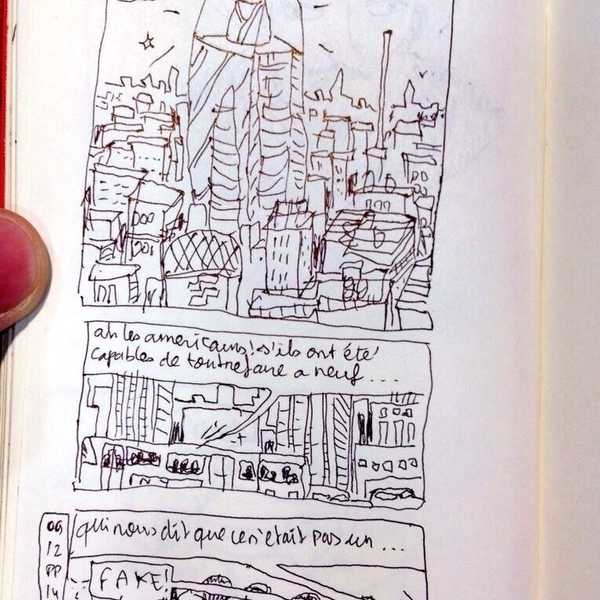 ah les americains! s'ils ont été
capables de tout refaire a neuf...
qui nous dit que ce n'était pas un...
09
12
FAKE!
14